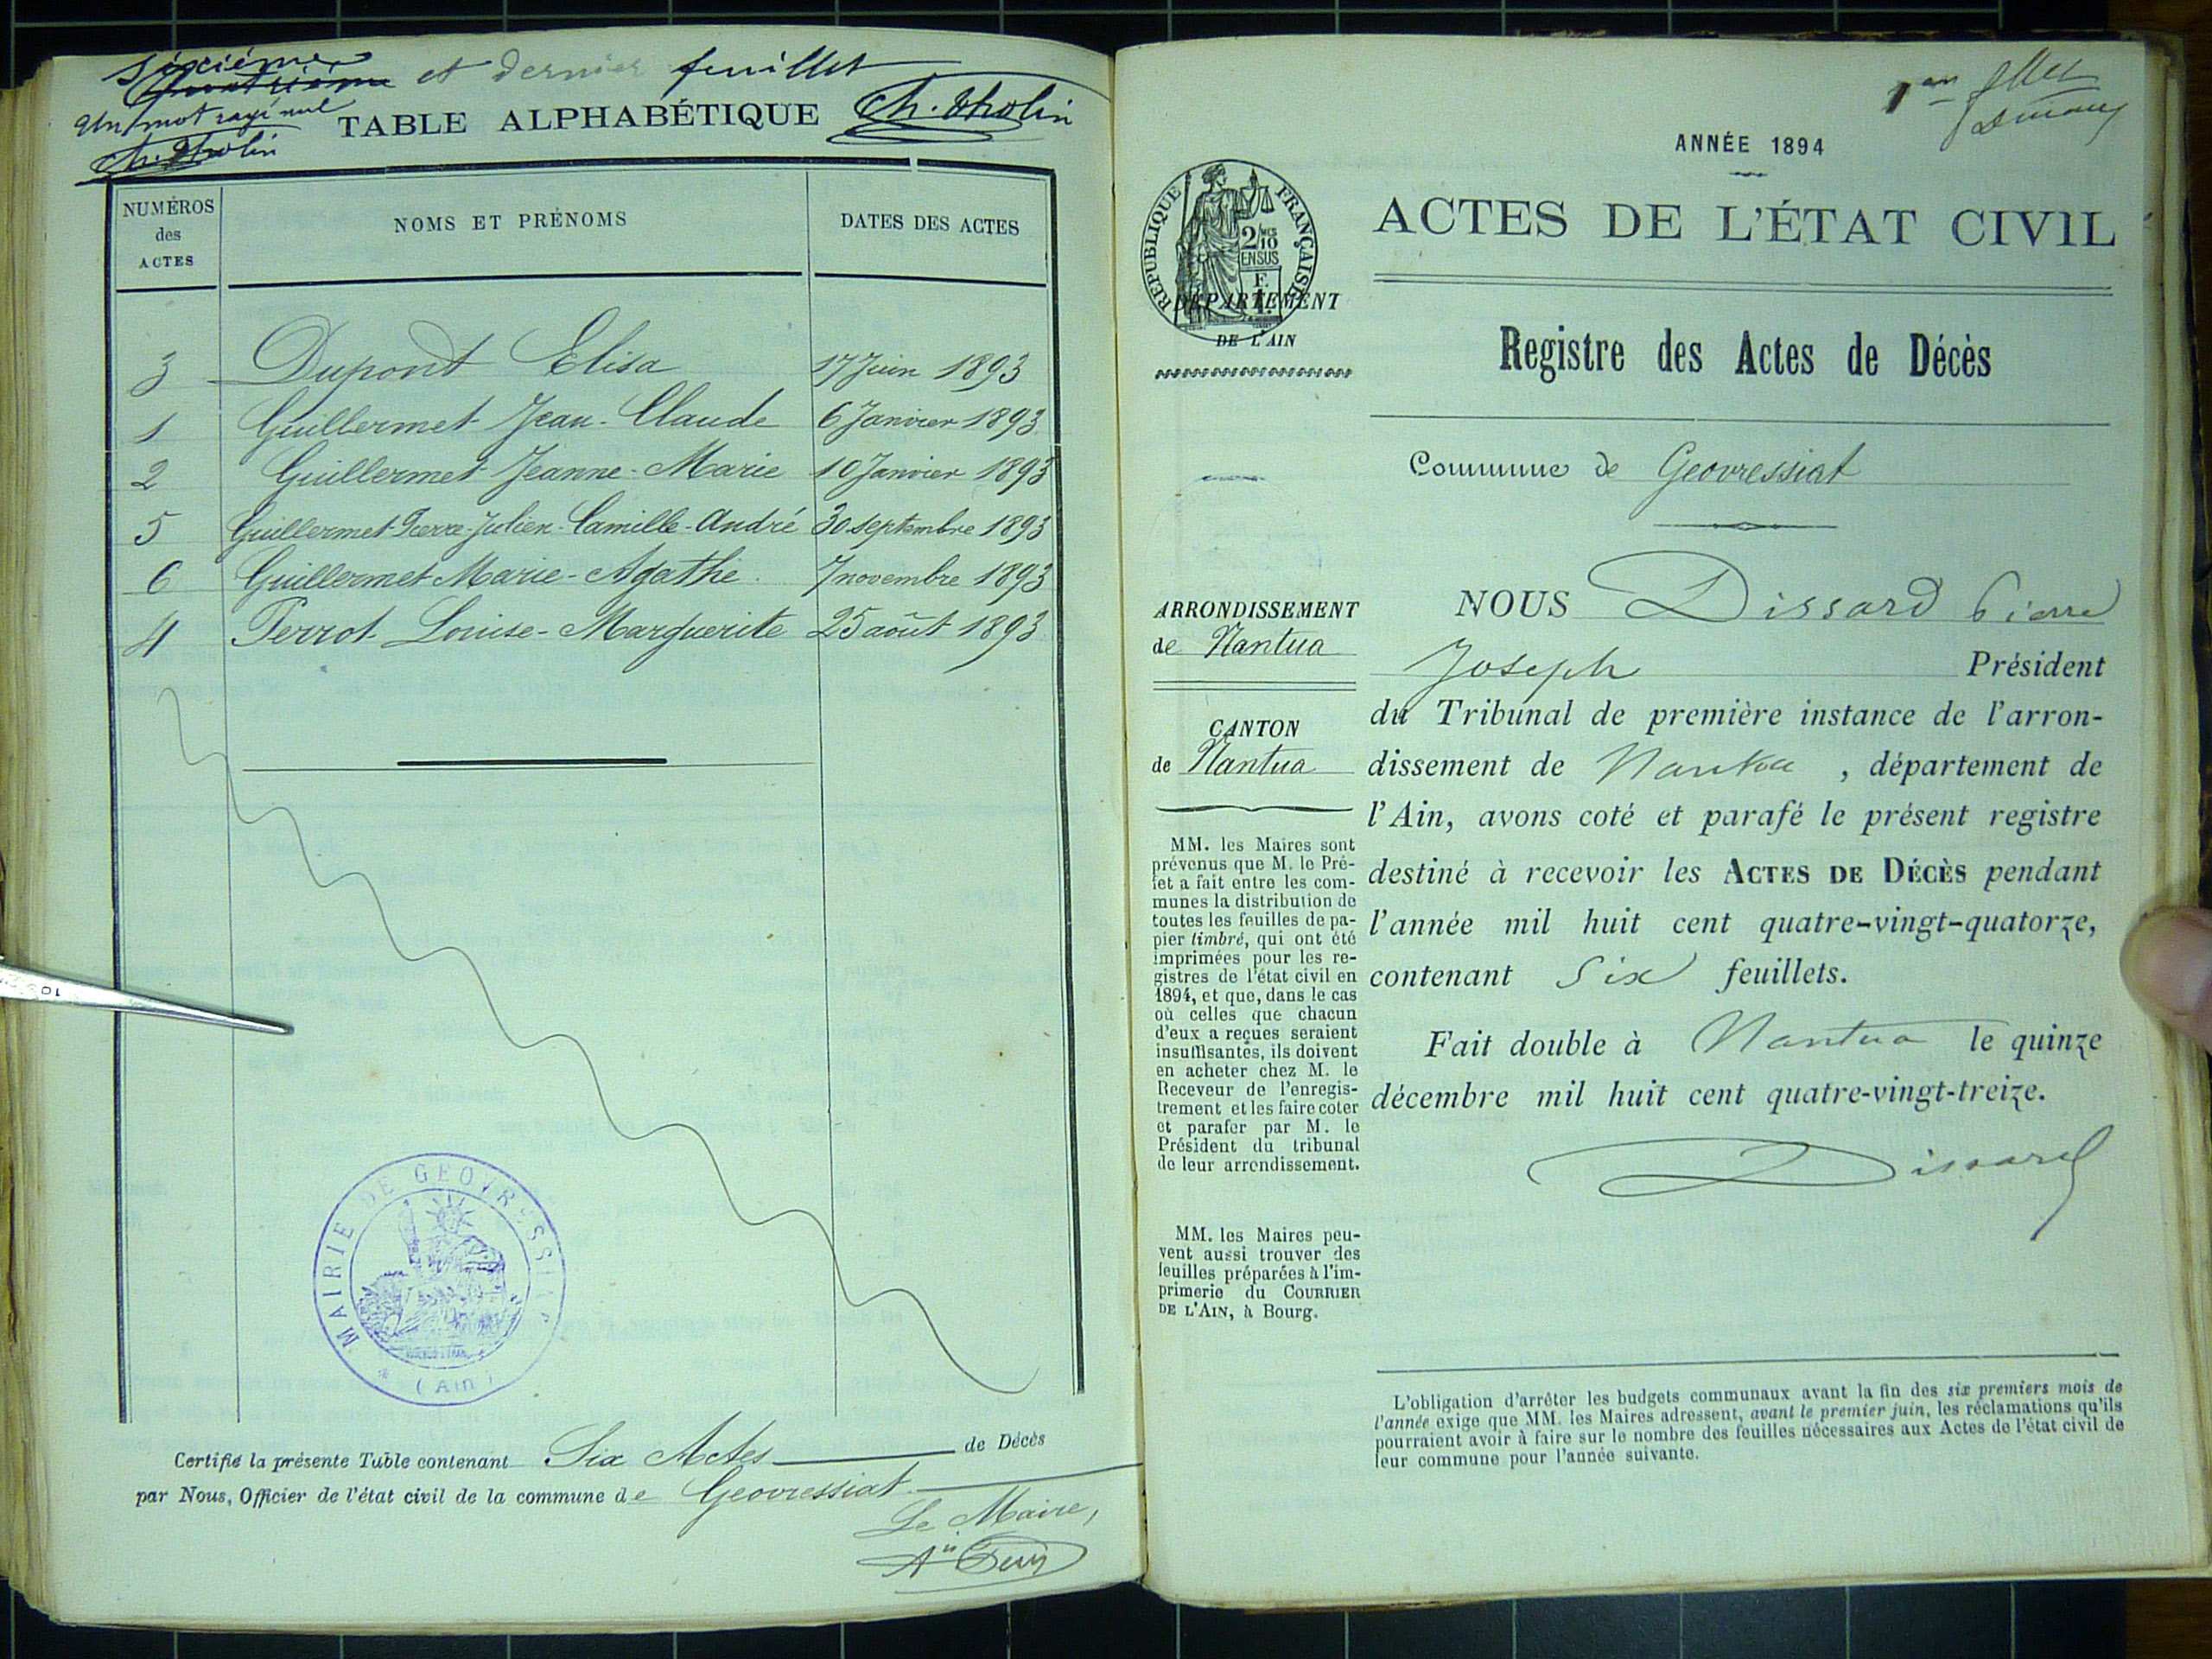 sixième
et dernier feuillet
Un mot rayé nul
Ch. Tholin
TABLE ALPHABÉTIQUE
Ch. Tholin
NUMÉROS des ACTES
NOMS ET PRÉNOMS
DATES DES ACTES
3 Dupont Elisa 17 Juin 1893
1 Guillermet Jean-Claude 6 Janvier 1893
2 Guillermet Jeanne-Marie 10 Janvier 1893
5 Guillermet Pierre-Julien-Camille-André 30 septembre 1893
6 Guillermet Marie-Agathe. 7 novembre 1893
4 Perrot Louise-Marguerite 25 août 1893
MAIRIE DE GEOVRESSIAT
(Ain)
Certifié la présente Table contenant Six Actes de Décès
par Nous, Officier de l'état civil de la commune de Geovressiat.
Le Maire,
1er
ANNÉE 1894
RÉPUBLIQUE FRANÇAISE
2/10
EN SUS
ACTES DE L'ÉTAT CIVIL
DÉPARTEMENT
DE L'AIN
Registre des Actes de Décès
Commune de Geovressiat
ARRONDISSEMENT
de Nantua
CANTON
de Nantua
MM. les Maires sont
prévenus que M. le Pré-
fet a fait entre les com-
munes la distribution de
toutes les feuilles de pa-
pier timbré, qui ont été
imprimées pour les re-
gistres de l'état civil en
1894, et que, dans le cas
où celles que chacun
d'eux a reçues seraient
insuffisantes, ils doivent
en acheter chez M. le
Receveur de l'enregis-
trement et les faire coter
et parafer par M. le
Président du tribunal
de leur arrondissement.
MM. les Maires peu-
vent aussi trouver des
feuilles préparées à l'im-
primerie du COURRIER
DE L'AIN, à Bourg.
NOUS Dissard Pierre
Joseph Président
du Tribunal de première instance de l'arron-
dissement de Nantua, département de
l'Ain, avons coté et parafé le présent registre
destiné à recevoir les ACTES DE DÉCÈS pendant
l'année mil huit cent quatre-vingt-quatorze,
contenant Six feuillets.
Fait double à Nantua le quinze
décembre mil huit cent quatre-vingt-treize.
Dissard
L'obligation d'arrêter les budgets communaux avant la fin des six premiers mois de
l'année exige que MM. les Maires adressent, avant le premier juin, les réclamations qu'ils
pourraient avoir à faire sur le nombre des feuilles nécessaires aux Actes de l'état civil de
leur commune pour l'année suivante.